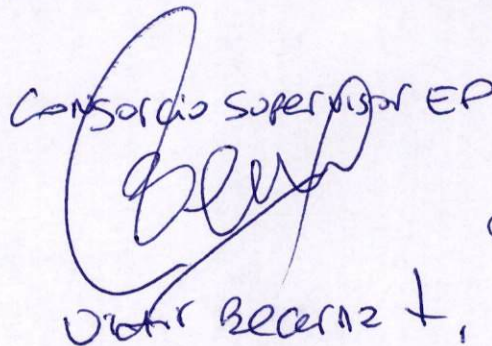 Consorcio Supervisor EP
Victor Becerra t,